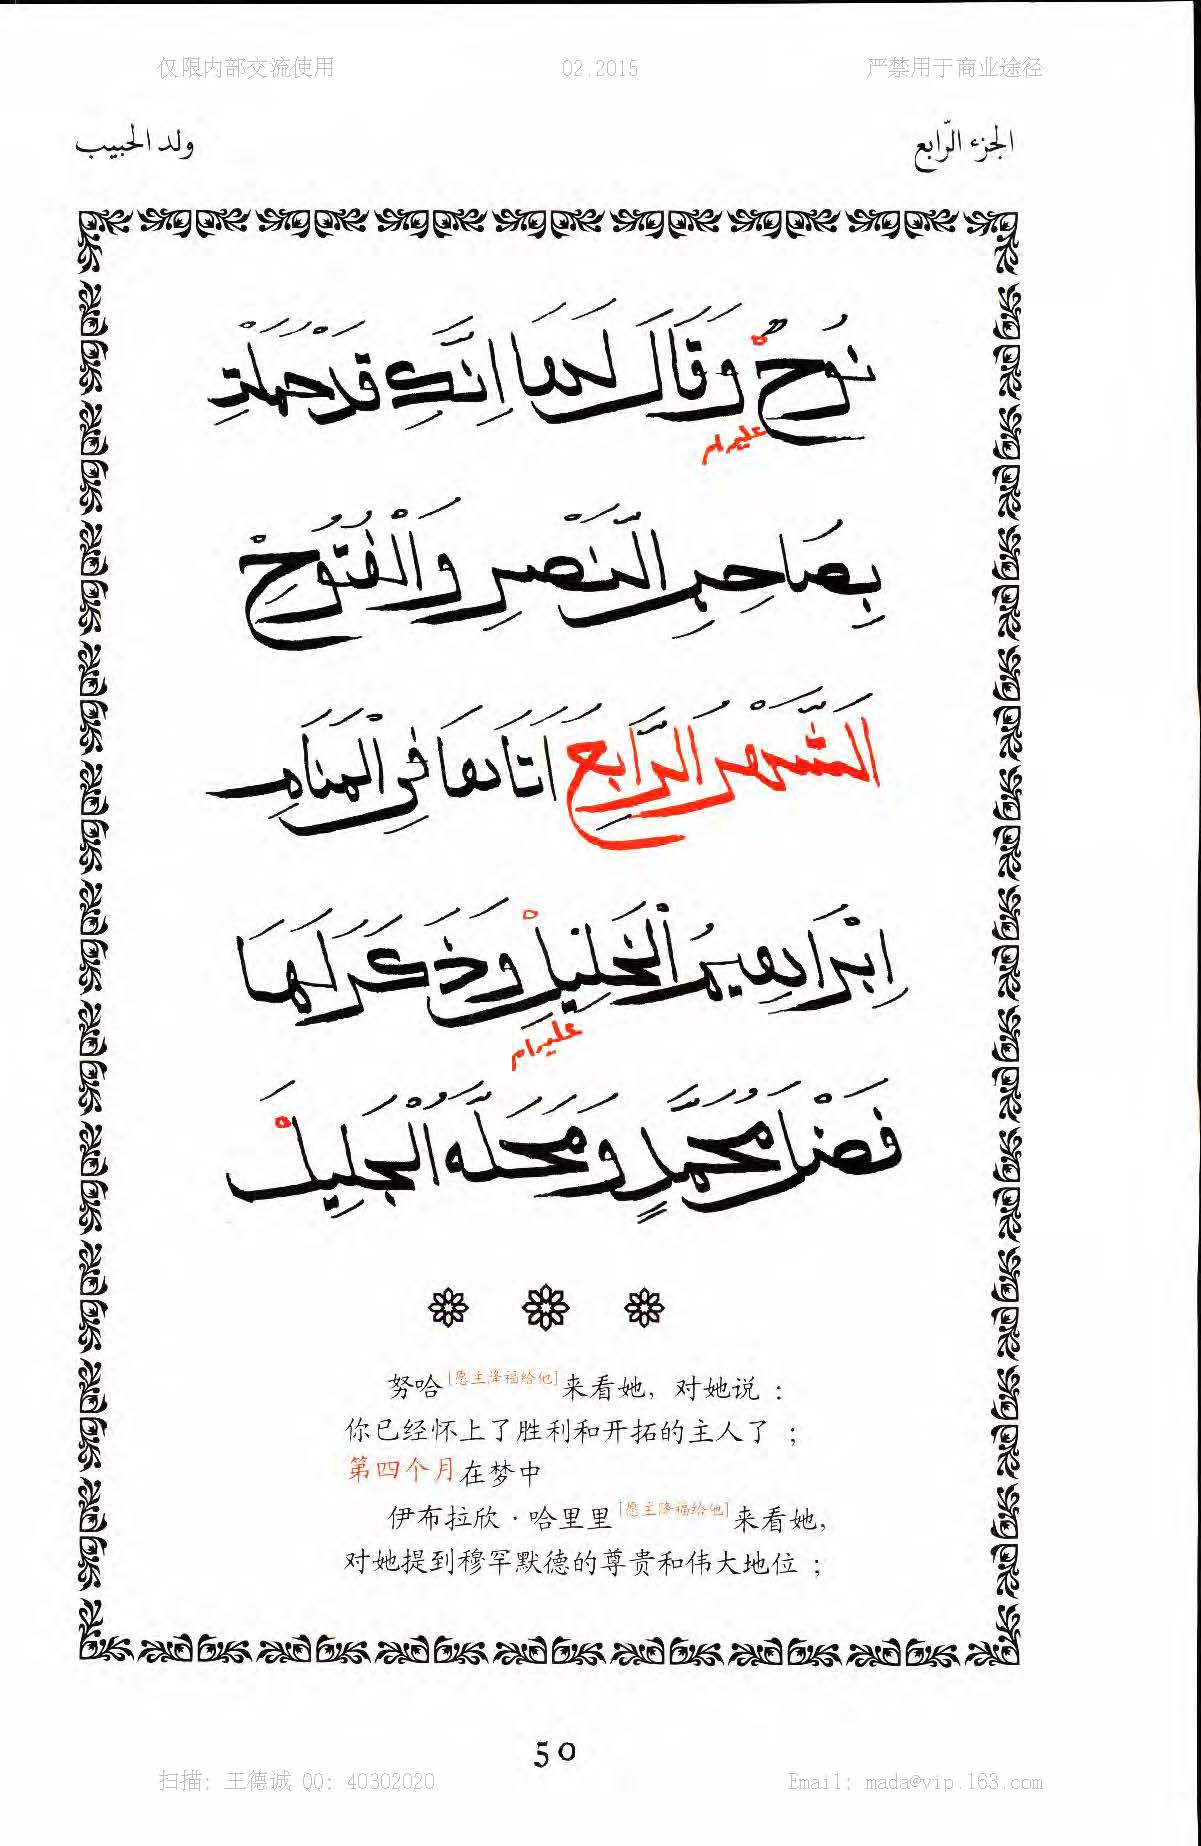 仅限内部交流使用 02.2015 严禁用于商业途径
الجزء الرّابع ولد الحبيب
نُوحٌ وَقَالَ لَهَا اِنَّكِ قَدْ حَمَلْتِ
عليه لم
بِصَاحِبِ النَّصْرِ وَالْفُتُوحِ
اَلشَّهْرُ الرَّابِعُ اَتَاهَا فِي الْمَنَامِ
اِبْرَاهِيمُ الْخَلِيلُ وَذَكَرَ لَهَا
عليه ام
فَضْلَ مُحَمَّدٍ وَمَحَلَّهُ الْجَلِيلَ
努哈[愿主降福给他]来看她，对她说：
你已经怀上了胜利和开拓的主人了；
第四个月在梦中
伊布拉欣·哈里里[愿主降福给他]来看她，
对她提到穆罕默德的尊贵和伟大地位；
50
扫描: 王德诚 QQ: 40302020 Email: mada@vip.163.com